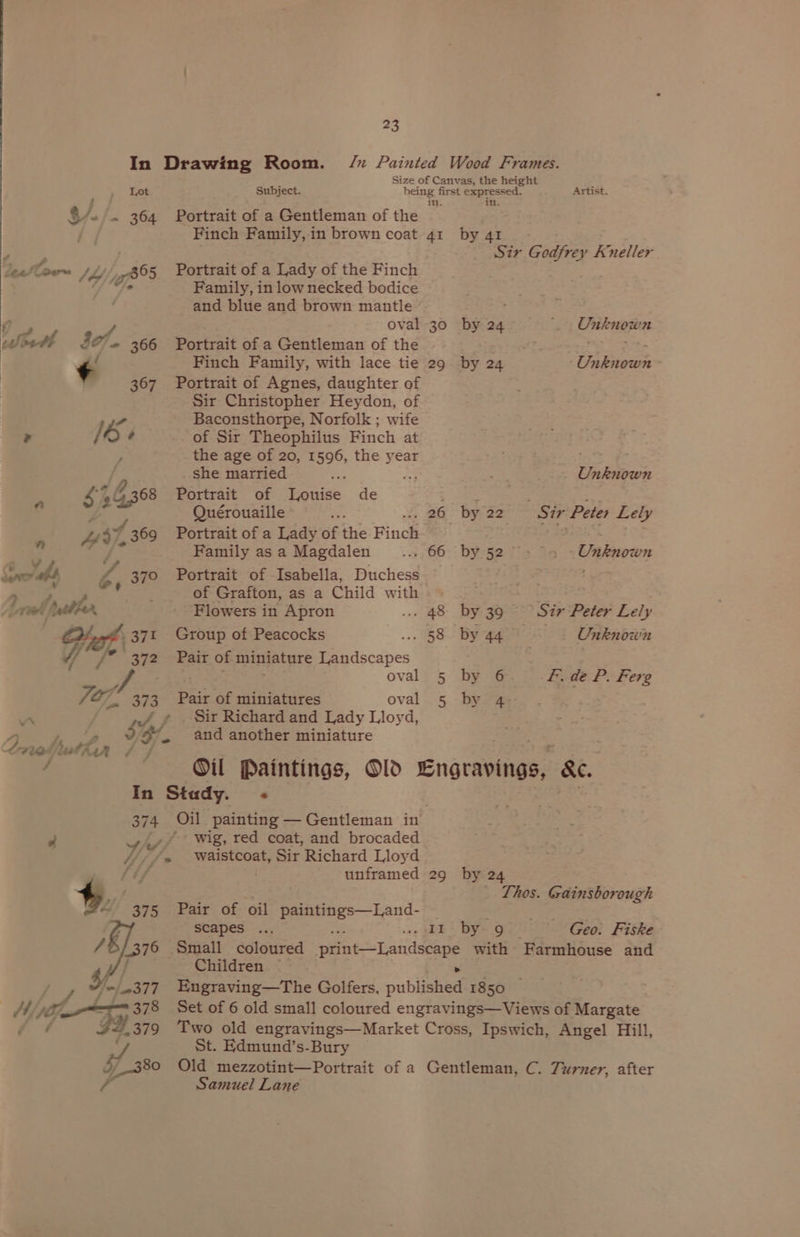 23
In Drawing Room. In Painted Wood Frames.
Size of Canvas, the height
Lot Subject. being first expressed. Artist.
in. in.
364 Portrait of a Gentleman of the
Finch Family, in brown coat 41 by 41
Sir Godfrey Kneller
365 Portrait of a Lady of the Finch
Family, in low necked bodice
and blue and brown mantle
oval 30 by 24 Unknown
366 Portrait of a Gentleman of the
Finch Family, with lace tie 29 by 24 Unknown
367 Portrait of Agnes, daughter of
Sir Christopher Heydon, of
Baconsthorpe, Norfolk; wife
of Sir Theophilus Finch at
the age of 20, 1596, the year
she married ... ... Unknown
368 Portrait of Louise de
Quérouaille ... ... 26 by 22 Sir Peter Lely
369 Portrait of a Lady of the Finch
Family as a Magdalen ... 66 by 52 Unknown
370 Portrait of Isabella, Duchess
of Grafton, as a Child with
Flowers in Apron ... 48 by 39 Sir Peter Lely
371 Group of Peacocks ... 58 by 44 Unknown
372 Pair of miniature Landscapes
oval 5 by 6 F. de P. Ferg
373 Pair of miniatures oval 5 by 4
Sir Richard and Lady Lloyd,
and another miniature
Oil Paintings, Old Engravings, &c.
In Study.
374 Oil painting — Gentleman in
wig, red coat, and brocaded
waistcoat, Sir Richard Lloyd
unframed 29 by 24
Thos. Gainsborough
375 Pair of oil paintings—Land-
scapes ... ... 11 by 9 Geo. Fiske
376 Small coloured print—Landscape with Farmhouse and
Children
377 Engraving—The Golfers, published 1850
378 Set of 6 old small coloured engravings—Views of Margate
379 Two old engravings—Market Cross, Ipswich, Angel Hill,
St. Edmund's-Bury
380 Old mezzotint—Portrait of a Gentleman, C. Turner, after
Samuel Lane